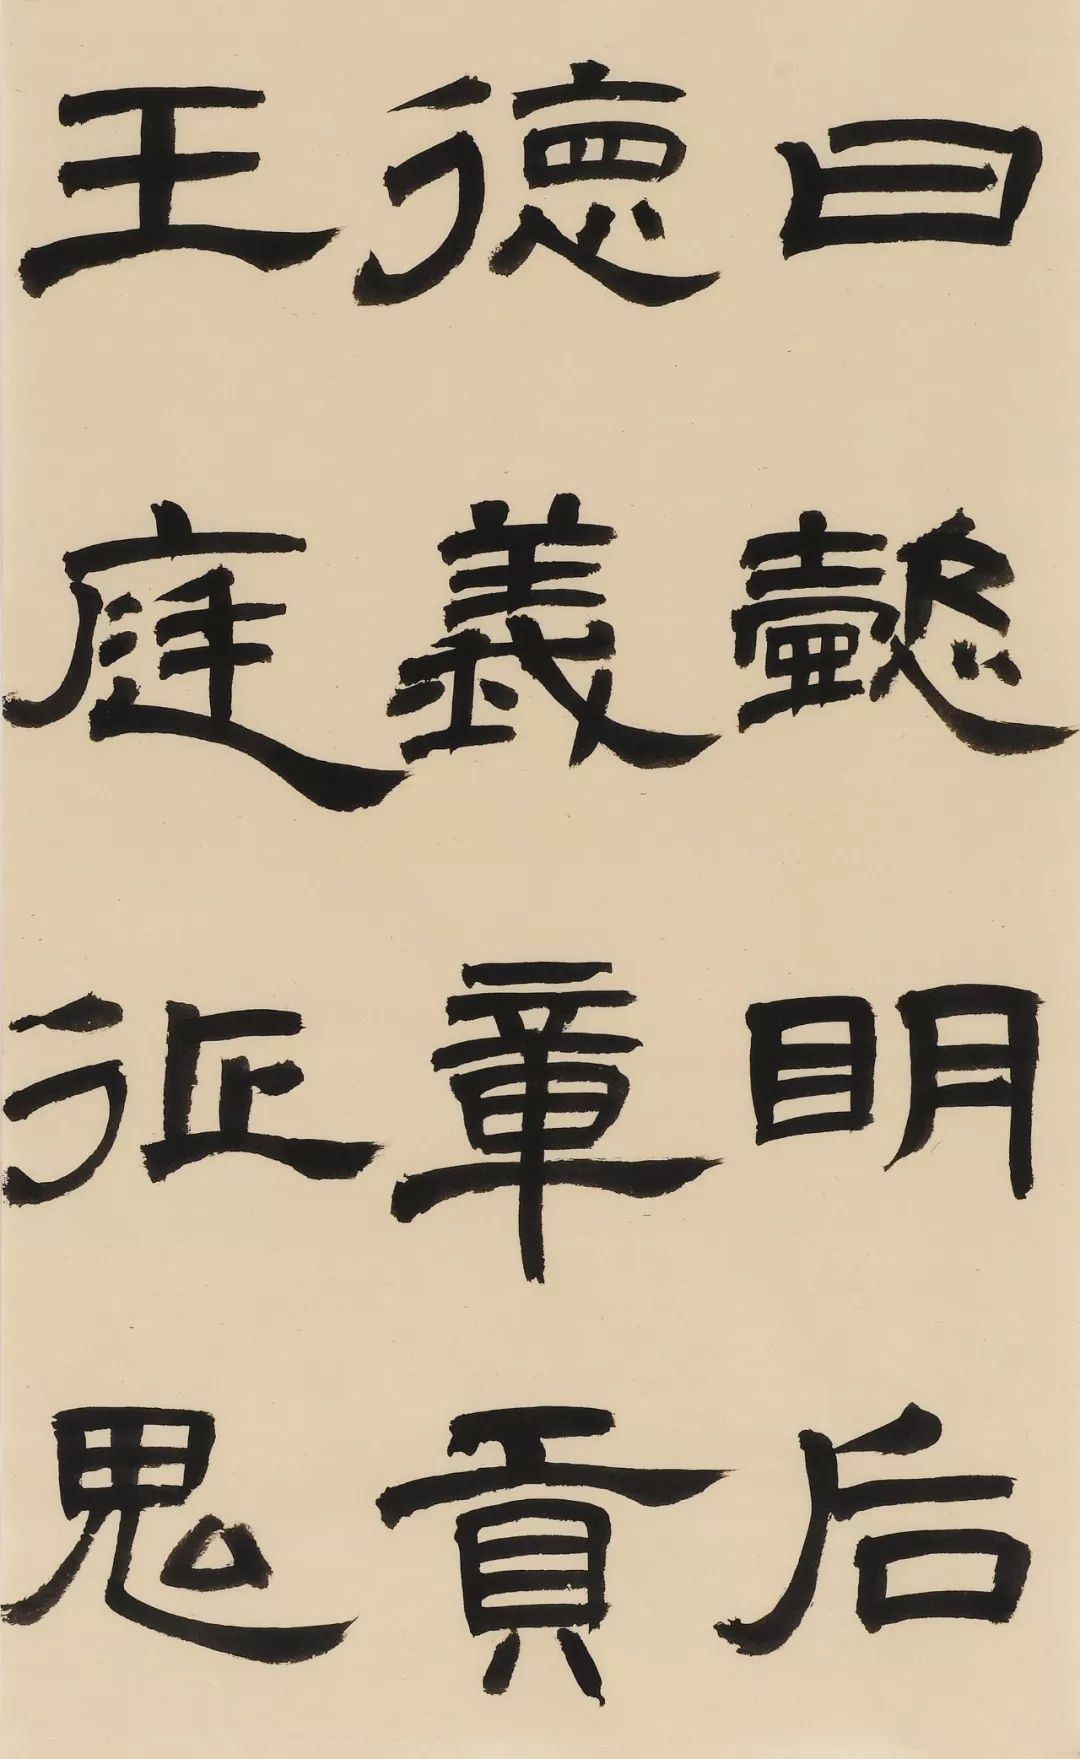 曰懿明后
德義章貢
王庭征鬼